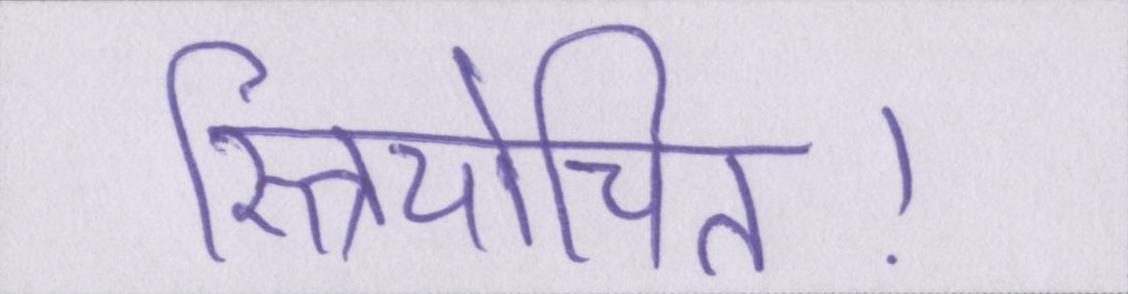 स्त्रियोचित!